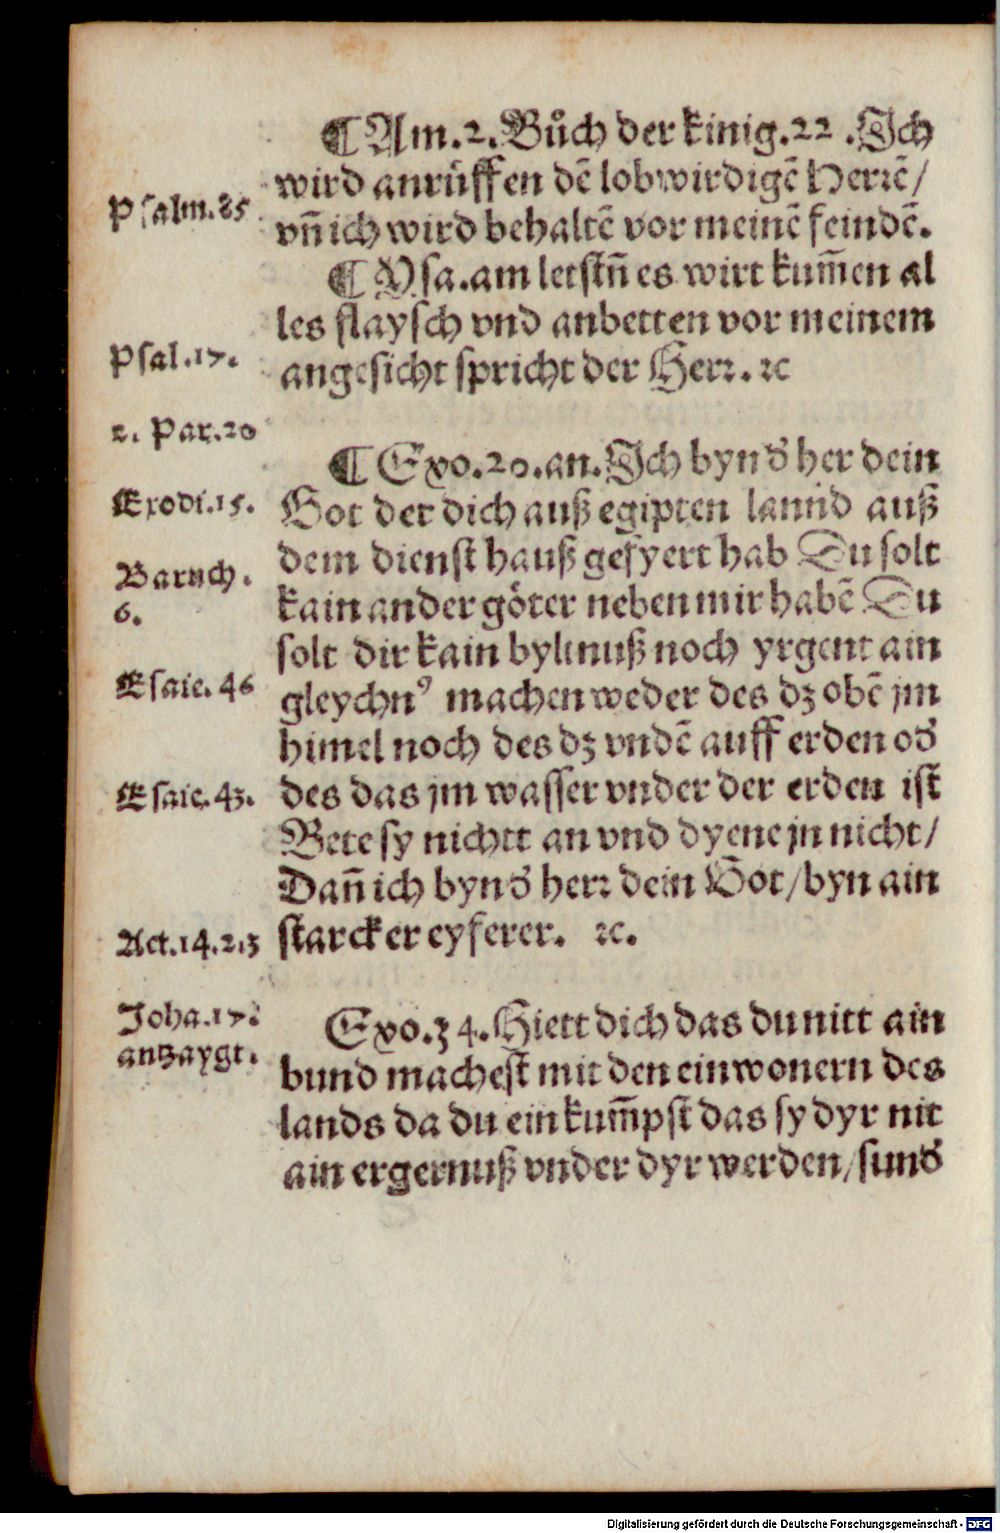 ¶ Am.2.Bůch der kinig.22.Ich
wird anrüffen dē lobwirdigē Herrē/
vn̄ ich wird behaltē vor meinē feindē.
¶ Ysa.am letstn̄ es wirt kum̄en al
les flaysch vnd anbetten vor meinem
angesicht spricht der Herr. ꝛc
¶ Exo.20.an.Ich byn d̕ her dein
Got der dich auß egipten lannd auß
dem dienst hauß gefyert hab Du solt
kain ander göter neben mir habē Du
solt dir kain byltnuß noch yrgent ain
gleychnꝰ machen weder des dz obē jm
himel noch des dz vndē auff erden od̕
des das jm wasser vnder der erden ist
Bete sy nichtt an vnd dyene jn nicht/
Dan̄ ich byn d̕ herr dein Got/byn ain
starcker eyferer. ꝛc.
Exo.34.Hiett dich das du nitt ain
bund machest mit den einwonern des
lands da du ein kum̄pst das sy dyr nit
ain ergernuß vnder dyr werden/sund̕
Psalm.85.
Psal.17.
2. Par.20
Exodi.15.
Baruch.
6.
Esaie.46
Esaie.43.
Act.14.2.3
Joha.17.
antzaygt.
Digitalisierung gefördert durch die Deutsche Forschungsgemeinschaft - DFG